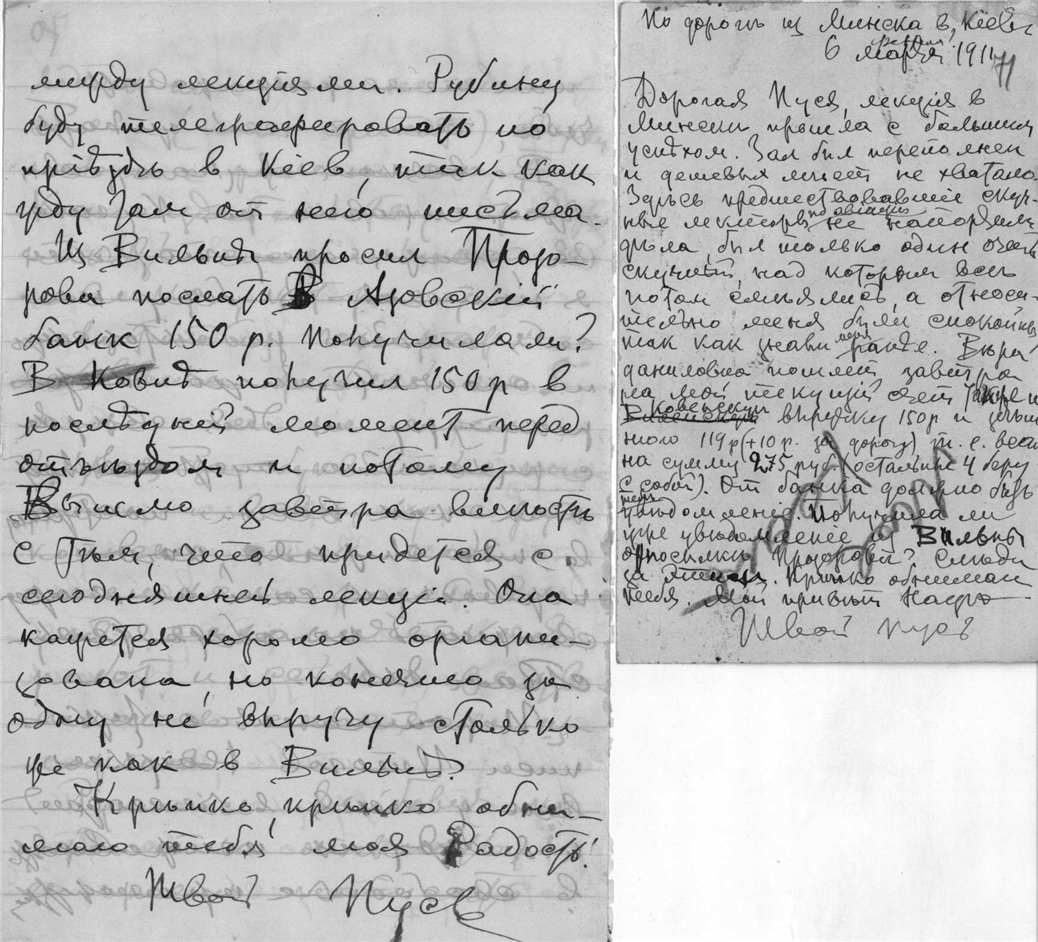 между лекциями. Рубину
буду телеграфировать по
пріѣздѣ в Кіев, так как
жду там от него письма.
Из Вильны просил Продо-
рова послать в Азовскій
банк 150 р. Получила ли?
В Ковнѣ получил 150 р в
послѣдний момент перед
отъѣздом и потому
Вышлю завтра вмѣстѣ
с тѣм, что придется с
сегодняшней лекціи. Она
кажется хорошо органи-
зована, но конечно за
одну не выручу столько
же как в Вильнѣ.
Крѣпко, крѣпко обни-
маю тебя моя Радость!
Твой Пусь
По дорогѣ из Минска в Кіев
6 марта 1911
71
Дорогая Пуся, лекція в
Минскѣ прошла с большим
успѣхом. Зал был переполнен
и дешевых мѣст не хватало.
Здѣсь предшествовавшіе скуч-
ные лекторы по авіаціи не напортили
дѣла, был только один очень
скучный, над которым всѣ
потом смѣялись, а относи-
тельно меня были спокойны
так как знали меня ранѣе. Вѣра
Даниловна пошлет завтра
на мой текущій счет также и
Ковенскую выручку 150 р и
119 р (+10 р. за дорогу) т. е. всего
на сумму 275 руб (остальные 4 беру
с собой). От банка должно быть
увѣдомленіе. Получила ли
уже увѣдомленіе из Вильны
о посылкѣ? Слѣди
за этим. Крѣпко обнимаю
тебя. Мой привѣт Надѣ
Твой Пусь